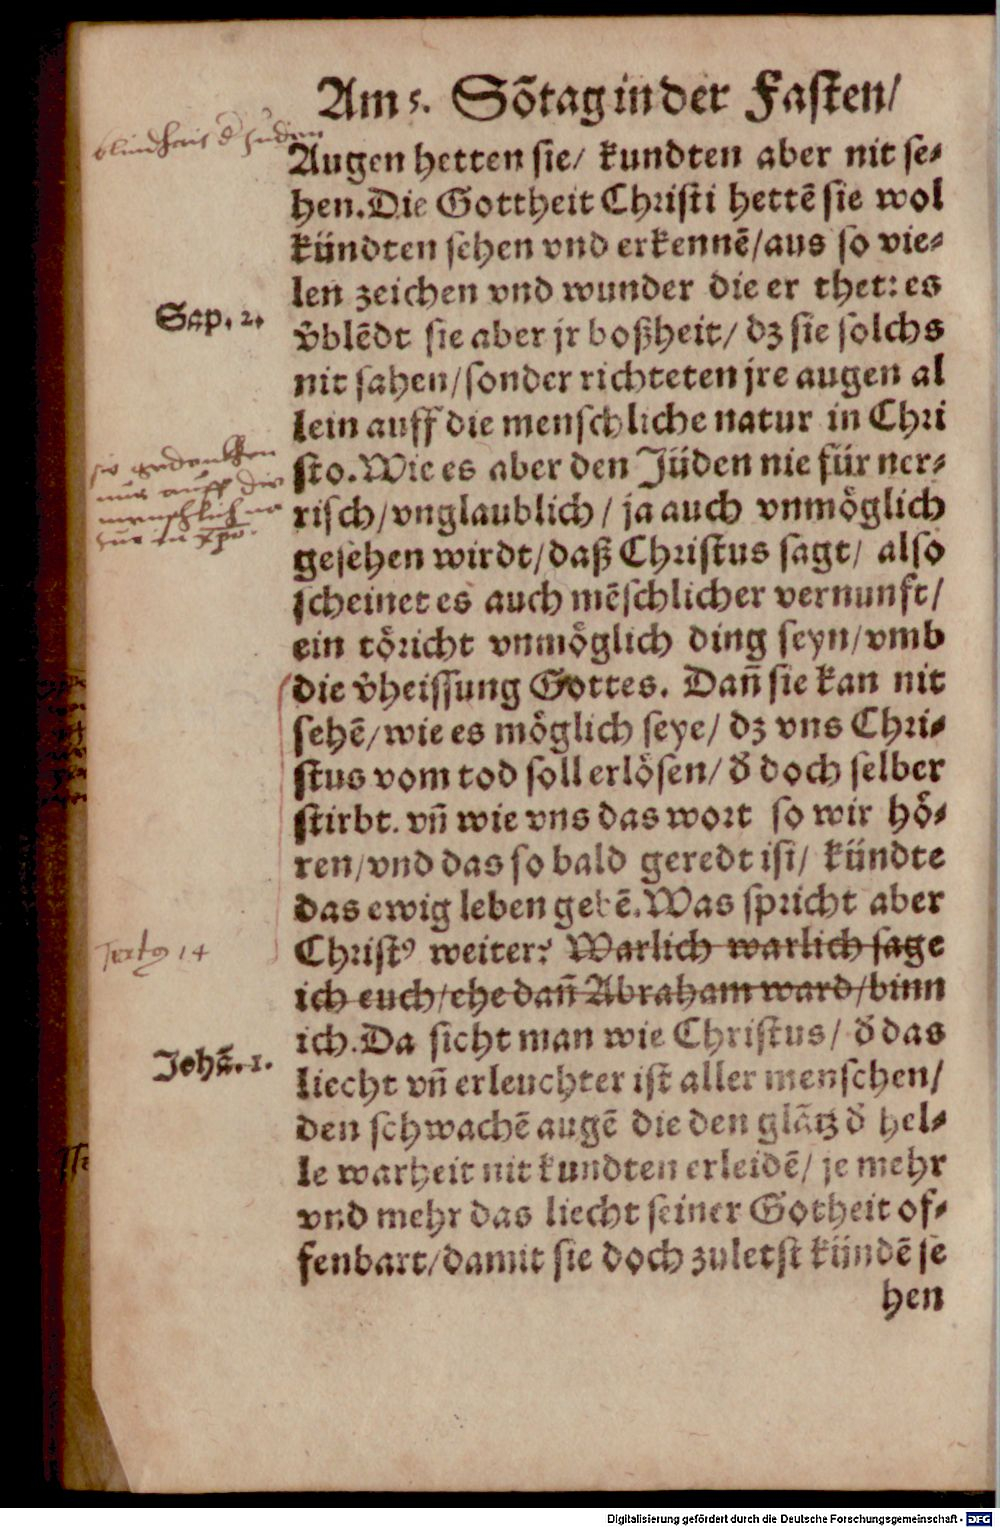 Am 5. Sõtag in der Fasten/
blindheit d̄ Juden
Augen hetten sie/ kundten aber nit se⸗
hen. Die Gottheit Christi hettẽ sie wol
kündten sehen vnd erkennẽ/aus so vie⸗
len zeichen vnd wunder die er thet: es
Sap. 2.
v̊blẽdt sie aber jr boßheit/ dz sie solchs
nit sahen/sonder richteten jre augen al
lein auff die menschliche natur in Chri
sto. Wie es aber den Jüden nie für ner⸗
sie gedenkken
nur auff die
menschlich na
tur in xpo.
risch/vnglaublich/ ja auch vnmöglich
gesehen wirdt/daß Christus sagt/ also
scheinet es auch mẽschlicher vernunft/
ein töricht vnmöglich ding seyn/vmb
die v̊heissung Gottes. Dañ sie kan nit
sehẽ/wie es möglich seye/ dz vns Chri⸗
stus vom tod soll erlösen/ d̊ doch selber
stirbt. vñ wie vns das wort so wir hö⸗
ren/vnd das so bald geredt ist/ kündte
das ewig leben gebẽ. Was spricht aber
Textꝰ 14
Christꝰ weiter? Warlich warlich sage
ich euch/ehe dañ Abraham ward/binn
ich. Da sicht man wie Christus/ d̊ das
Johã. 1.
liecht vñ erleuchter ist aller menschen/
den schwachẽ augẽ die den glãtz d̊ hel⸗
le warheit nit kundten erleidẽ/ je mehr
vnd mehr das liecht seiner Gotheit of⸗
fenbart/damit sie doch zuletst kündẽ se
hen
Digitalisierung gefördert durch die Deutsche Forschungsgemeinschaft - DFG